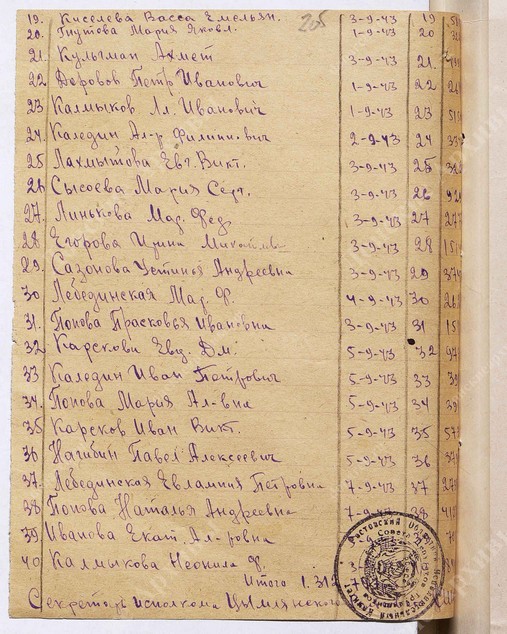 205
19. Киселева Васса Емельян. 3-9-43 19
20. Гнутова Мария Яковл. 1-9-43 20
21. Кульман Ахмет 3-9-43 21.
22 Деровов Петр Иванович 1-9-43 22
23 Калмыков Ал. Иванович 1-9-43 23
24. Каледин Ал-р Филиппович 2-9-43 24
25 Лахмытова Евг. Викт. 3-9-43 25
26 Сысоева Мария Серг. 3-9-43 26
27. Линькова Мар. Фед 3-9-43 27
28 Егорова Ирина 3-9-43 28
29. Сазонова Устинья Андреевна 3-9-43 29
30 Лебединская Мар. Ф. 4-9-43 30
31. Попова Прасковья Ивановна 3-9-43 31
32 Карскова Евд. Дм. 5-9-43 32
33 Каледин Иван Петрович 5-9-43 33
34. Попова Мария Ал-вна 5-9-43 34
35 Карсков Иван Викт. 5-9-43 35
36 Нагибин Павел Алексеевич 5-9-43 36
37. Лебединская Евлампия Петровна 7-9-43 37
38 Попова Наталья Андреевна 7-9-43 38
39 Иванова Екат. Ал-ровна
40. Калмыкова Неонила Ф.
Итого
Секретарь исполкома Цымлянского